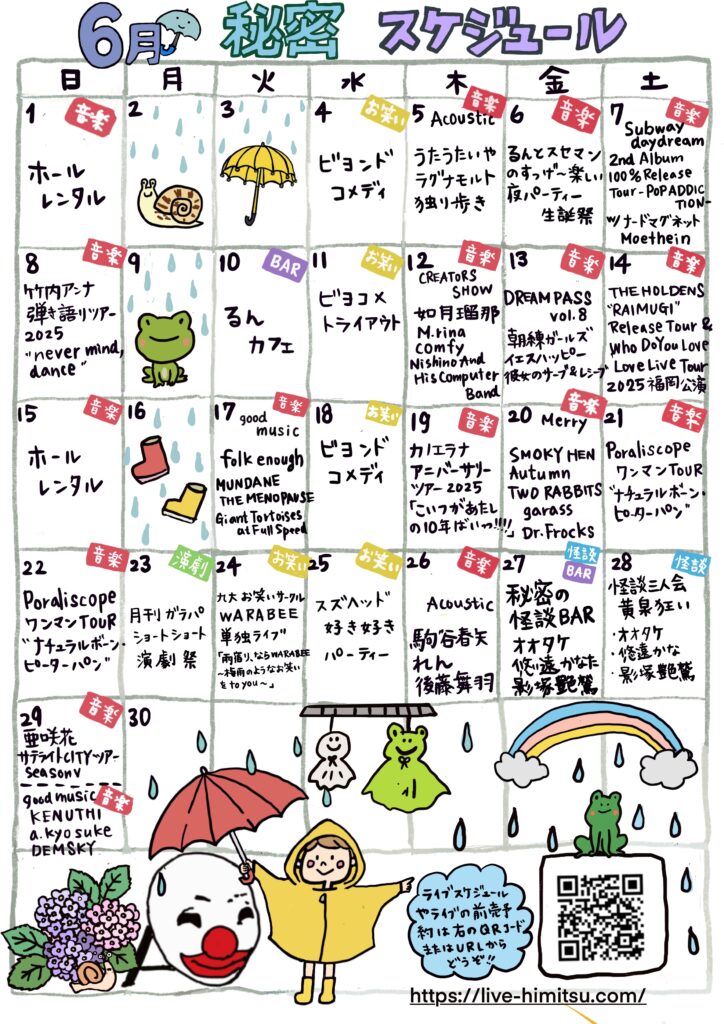 6月 秘密 スケジュール
日 月 火 水 木 金 土
1 音楽
ホール
レンタル
2
3
4 お笑い
ビヨンド
コメディ
5 音楽
Acoustic
うたうたいや
ラグナモルト
独り歩き
6 音楽
るんとスセマン
のすっげ〜楽しい
夜パーティー
生誕祭
7 音楽
Subway
daydream
2nd Album
100% Release
Tour -POP ADDIC
TION-
W/ ナードマグネット
Moethein
8 音楽
竹内アンナ
弾き語りツアー
2025
"never mind,
dance"
9
10 BAR
るん
カフェ
11 お笑い
ビヨコメ
トライアウト
12 音楽
CREATORS
SHOW
如月瑠那
M.rina
comfy
Nishino And
His Computer
Band
13 音楽
DREAM PASS
vol.8
朝練ガールズ
イエスハッピー
彼女のサーブ&レシーブ
14 音楽
THE HOLDENS
"RAIMUGI"
Release Tour &
Who Do You Love
Love Live Tour
2025 福岡公演
15 音楽
ホール
レンタル
16
17 音楽
good
music
folk enough
MUNDANE
THE MENOPAUSE
Giant Tortoises
at Full Speed
18 お笑い
ビヨンド
コメディ
19 音楽
カノエラナ
アニバーサリー
ツアー2025
「こいつがあたし
の10年ばいっ!!!!」
20 音楽
Merry
SMOKY HEN
Autumn
TWO RABBITS
garass
Dr.Frocks
21 音楽
Poraliscope
ワンマンTOUR
"ナチュラルボーン・
ピーターパン"
22 音楽
Poraliscope
ワンマンTOUR
"ナチュラルボーン・
ピーターパン"
23 演劇
月刊ガラパ
ショートショート
演劇祭
24 お笑い
九大お笑いサークル
WARABEE
単独ライブ
「雨宿り、ならWARABEE
〜梅雨のようなお笑い
をto you〜」
25 お笑い
スズヘッド
好き好き
パーティー
26 音楽
Acoustic
駒谷春矢
れん
後藤舞羽
27 怪談
BAR
秘密の
怪談BAR
オオタケ
悠遠かなた
影塚艶鷲
28 怪談
怪談三人会
黄泉狂い
・オオタケ
・悠遠かな
・影塚艶鷲
29 音楽
亜咲花
サテライトCITYツアー
season V
good music 音楽
KENUTHI
a.kyosuke
DEMSKY
30
ライブスケジュール
やライブの前売予
約は右のQRコード
またはURLから
どうぞ!!
https://live-himitsu.com/